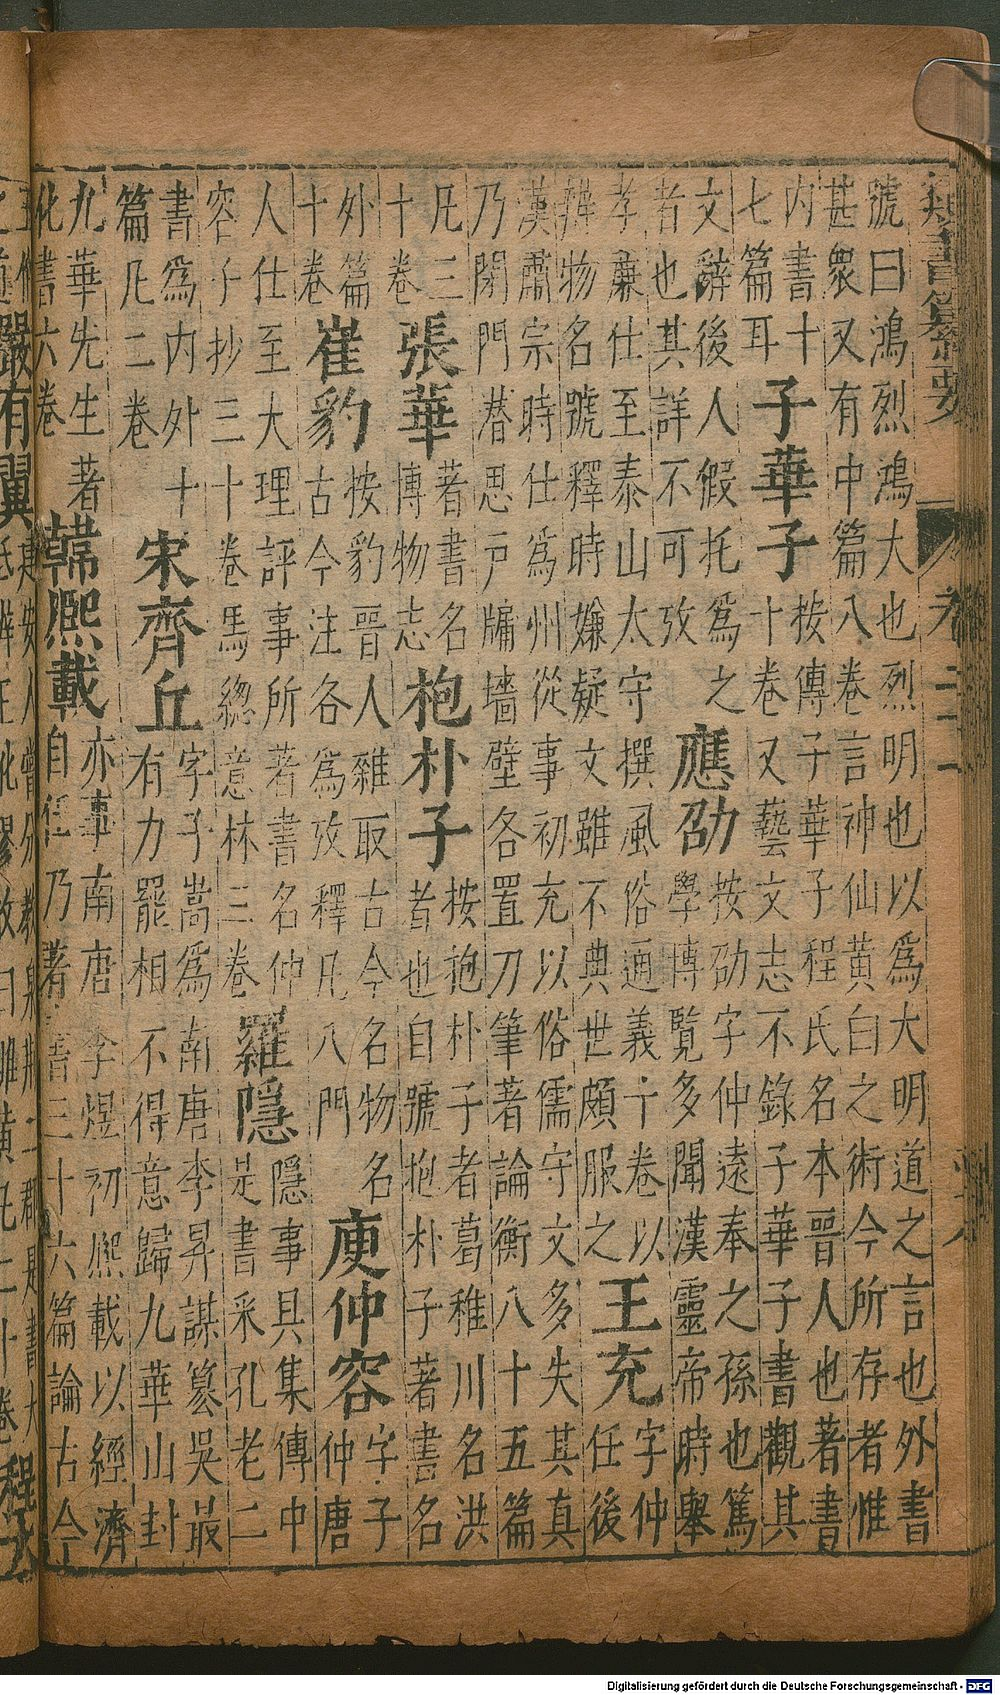 書纂要
號曰鴻烈鴻大也烈明也以爲大明道之言也外書
甚衆又有中篇八卷言神仙黄白之術今所存者惟
内書十
七篇耳
子華子
按傳子華子程氏名本晉人也著書
十卷又藝文志不錄子華子書觀其
文辭後人假托爲之
者也其詳不可攷
應劭
按劭字仲遠奉之孫也篤
學博覽多聞漢靈帝時舉
孝廉仕至泰山太守撰風俗通義十卷以
辨物名號釋時嫌疑文雖不典世頗服之
王充
字仲
任後
漢肅宗時仕爲州從事初充以俗儒守文多失其真
乃閉門思戸牖墻壁各置刀筆著論衡八十五篇
凡三
十卷
張華
著書名
博物志
抱朴子
按抱朴子者葛稚川名洪
者也自號抱朴子著書名
外篇
十卷
崔豹
按豹晉人雜取古今名物名
古今注各爲攷釋凡八門
庾仲容
字子
仲唐
人仕至大理評事所著書名仲
容子抄三十卷馬總意林三卷
羅隱
隱事具集傳中
是書采孔老二
書爲内外十
篇凡二卷
宋齊丘
字子嵩爲南唐李昇謀篡吳最
有力罷相不得意歸九華山封
九華先生著
化書六卷
韓熙載
亦事南唐李煜初熙載以經濟
自任乃著書三十六篇論古今
Digitalisierung gefördert durch die Deutsche Forschungsgemeinschaft - DFG